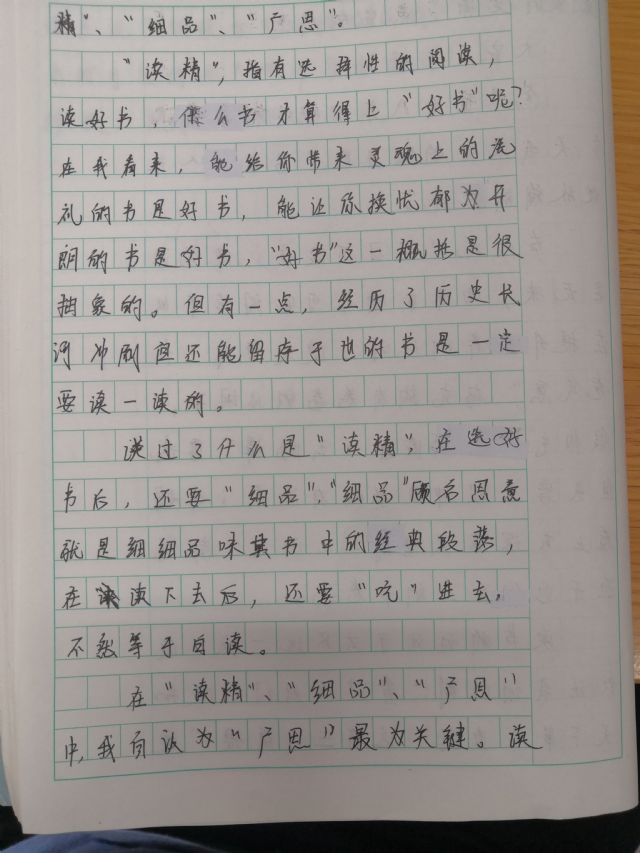 精”、“细品”、“广思”。
“读精”，指有选择性的阅读，
读好书，什么书才算得上“好书”呢？
在我看来，能给你带来灵魂上的洗
礼的书是好书，能让你换忧郁为开
朗的书是好书，“好书”这一概括是很
抽象的。但有一点，经历了历史长
河冲刷但还能留存于世的书是一定
要读一读的。
说过了什么是“读精”，在选好
书后，还要“细品”，“细品”顾名思意
就是细细品味其书中的经典段落，
在读下去后，还要“吃”进去，
不然等于白读。
在“读精”、“细品”、“广思”
中，我自认为“广思”最为关键。读